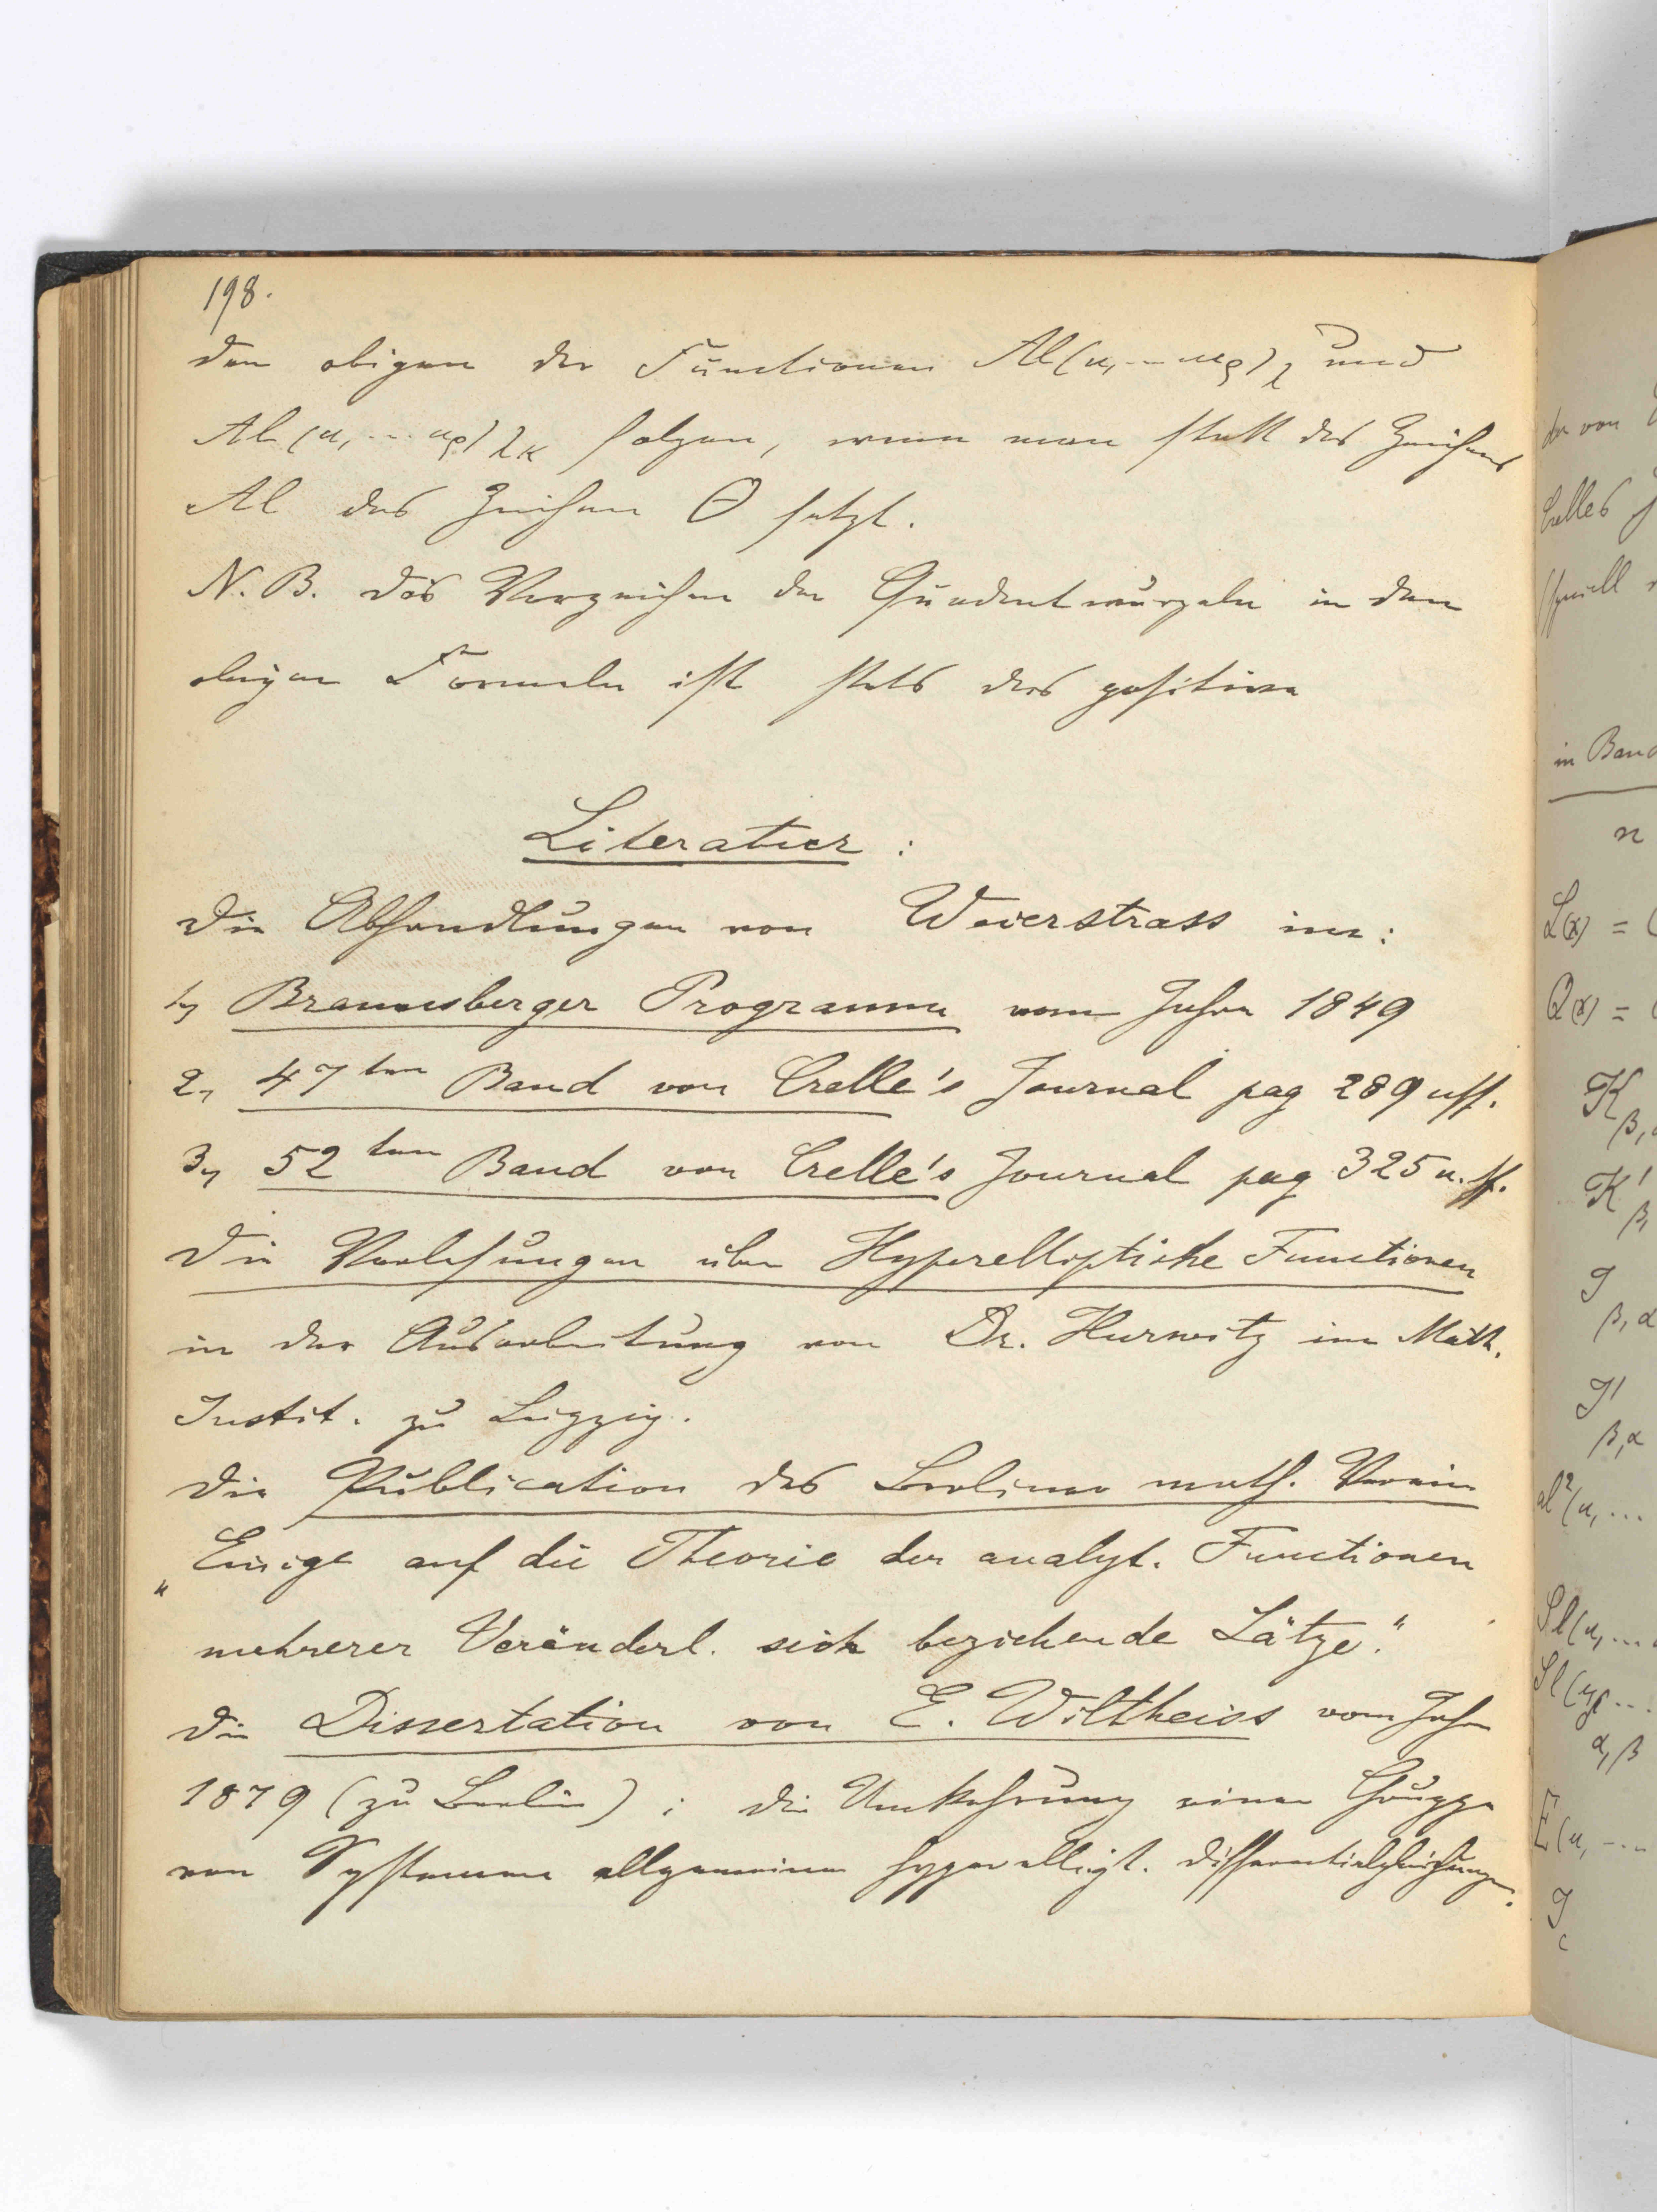 198.
den obigen der Functionen Al(u₁...uρ)λ und
Al(u₁...uρ)λκ folgen, wenn man statt des Zeichens
Al das Zeichen Θ setzt.
N.B. Das Vorzeichen der Quadratwurzeln in den
obigen Formeln ist stets das positive
Literatur :
Die Abhandlungen von Weierstrass im:
1, Braunsberger Programm vom Jahre 1849
2, 47ten Band von Crelle's Journal pag 289 uff.
3, 52ten Band von Crelle's Journal pag 325 u. ff.
Die Vorlesungen über Hyperelliptische Functionen
in der Ausarbeitung von Dr. Hurwitz im Math.
Instit. zu Leipzig.
Die Publication des Berliner math. Verein
„Einige auf die Theorie der analyt. Functionen
mehrerer Veränderl. sich beziehende Sätze."
Die Dissertation von E. Wiltheiss vom Jahre
1879 (zu Berlin) : Die Umkehrung einer Gruppe
von Systemen allgemeiner hyperellipt. Differentialgleichungen.
der von
Crelles J
speciell
in Band
n
L(x) = (
Q(x) = (
K β,
K' β,
J β,α
J' β,α
al²(u₁...
Al(u₁...
α,β
E(u₁...